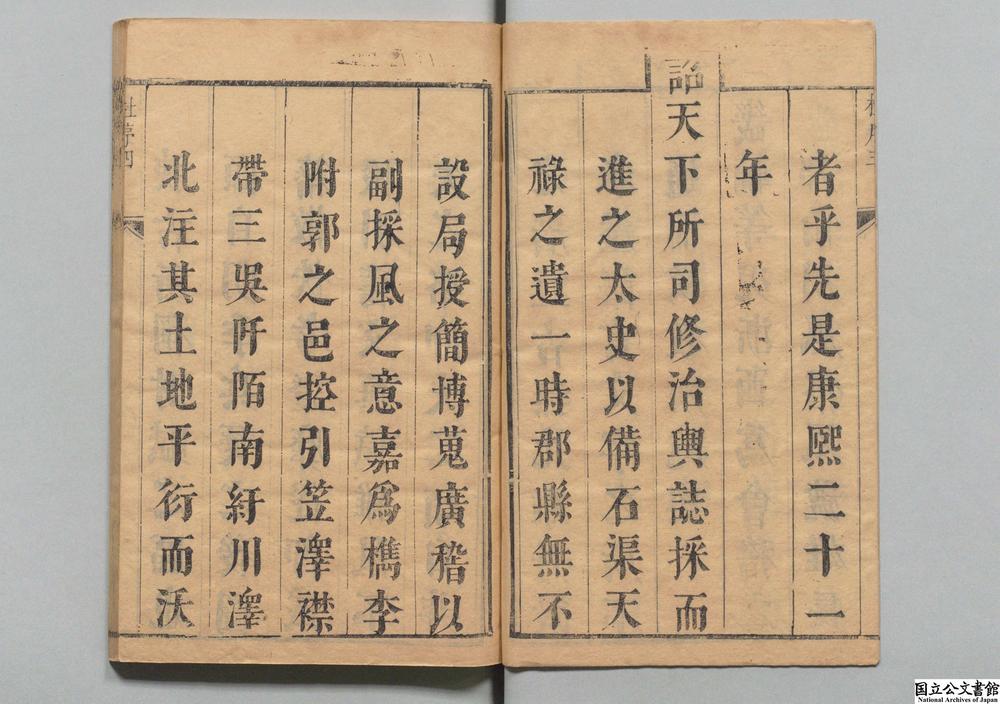 者乎先是康熙二十一
年
詔天下所司修治輿誌採而
進之太史以備石渠天
祿之遺一時郡縣無不
設局授簡博蒐廣稽以
副採風之意嘉爲檇李
附郭之邑控引笠澤襟
帶三吳阡陌南紆川澤
北注其土地平衍而沃
杜序四
国立公文書館
National Archives of Japan